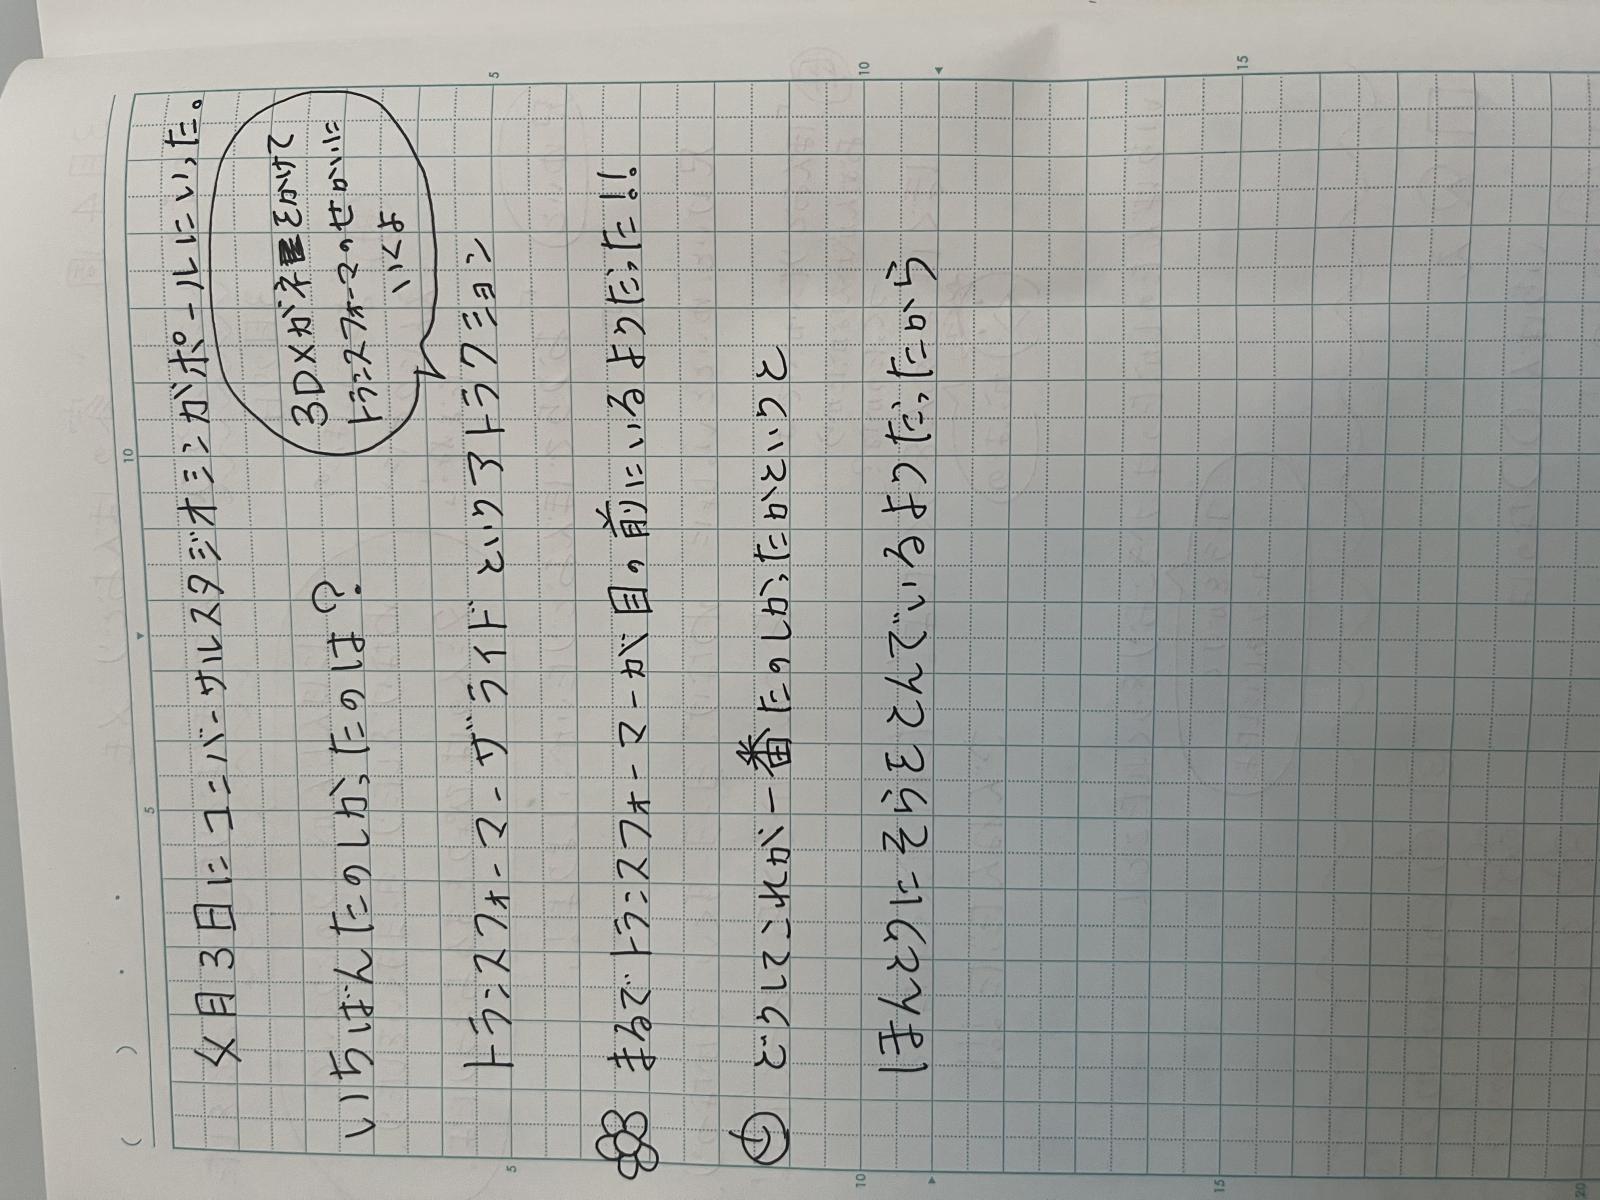 4月3日にユニバーサルスタジオシンガポールにいった。
いちばんたのしかったのは?
3Dメガネをかけて
トランスフォーマのせかいに
いくよ
トランスフォーマーザライドというアトラクション
まるでトランスフォーマーが目の前にいるようだった!!
どうしてこれが一番たのしかったかというと
ほんとうにそらをとんでいるようだったから
5
10
5
10
15
5
10
15
20